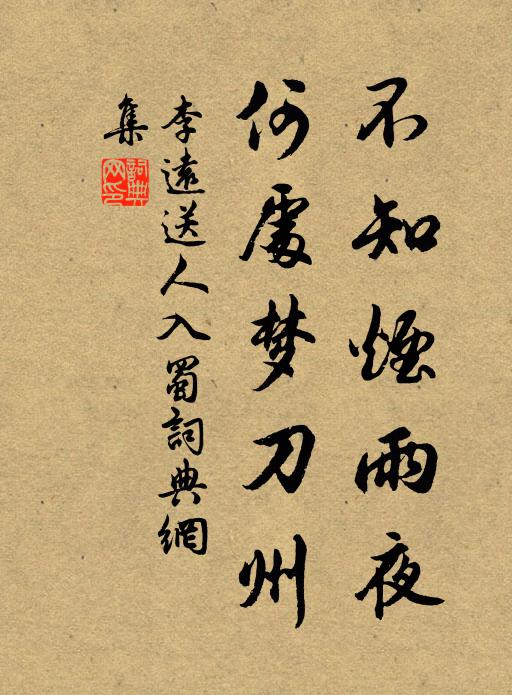 不知煙雨夜
何處梦刀州
李遠送人入蜀詞典網
集
詞典
网印